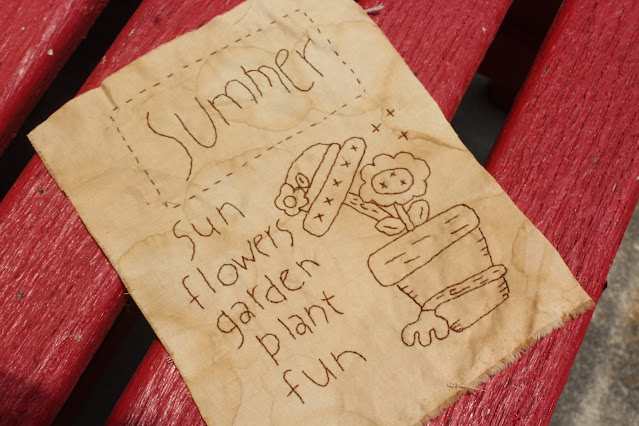 Summer
sun
flowers
garden
plant
fun